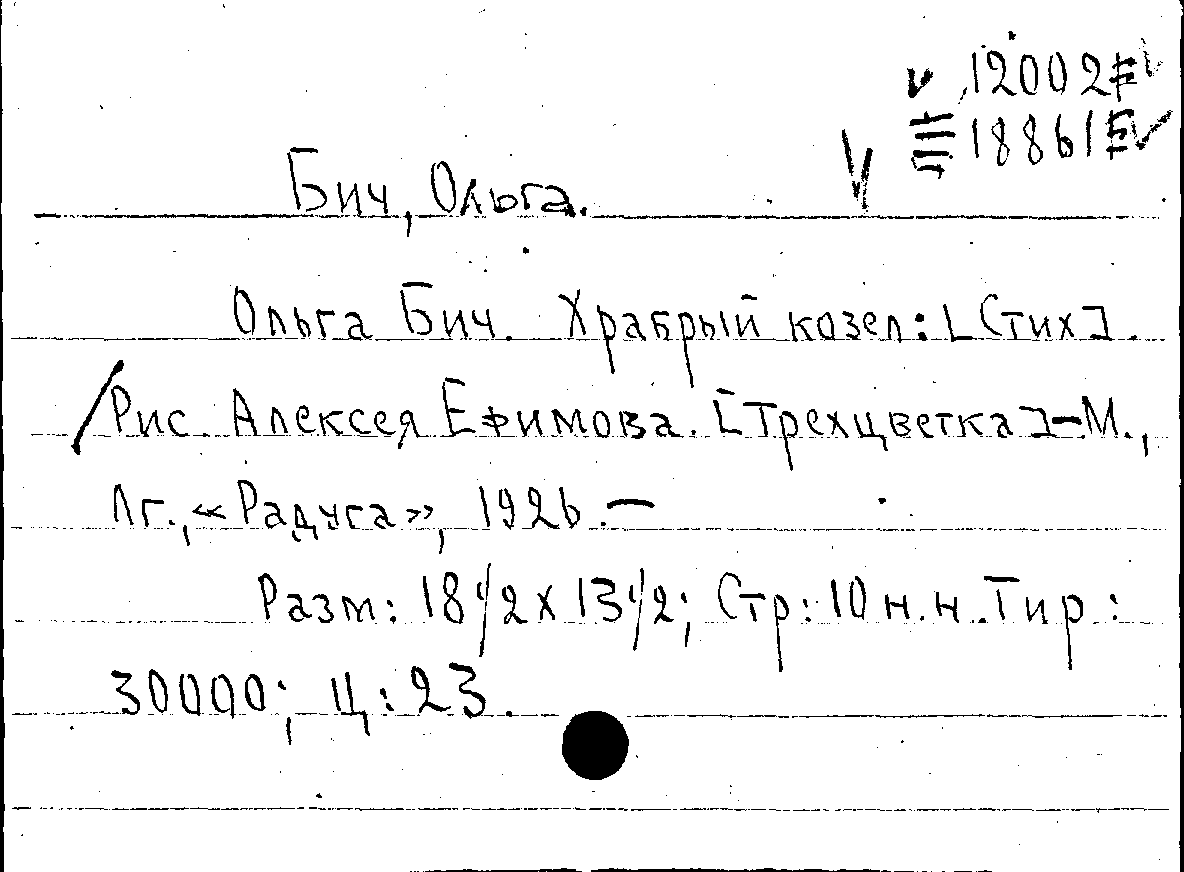 12002
18861
Бич, Ольга.
Ольга Бич. Храбрый козел: [Стих].
Рис. Алексея Ефимова. [Трехцветка]-М.,
Лг., «Радуга», 1926.—
Разм: 18 1/2 x 13 1/2; Стр: 10 н.н. Тир:
30000; Ц: 23.